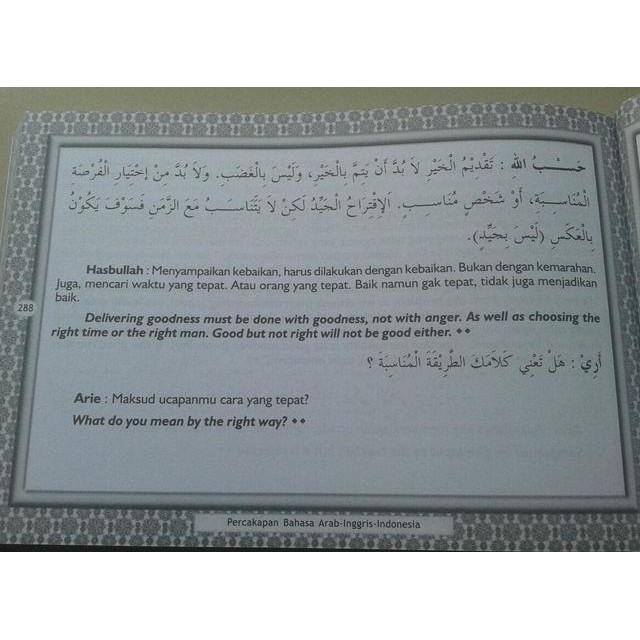 حَسْبُ اللهِ : تَقْدِيْمُ الْخَيْرِ لاَ بُدَّ أَنْ يَتِمَّ بِالْخَيْرِ، وَلَيْسَ بِالْغَضَبِ. وَلاَ بُدَّ مِنْ إِخْتِيَارِ الْفُرْصَةِ
الْمُنَاسِبَةِ، أَوْ شَخْصٍ مُنَاسِبٍ. اَلإِقْتِرَاحُ الْجَيِّدُ لَكِنْ لاَ يَتَنَاسَبُ مَعَ الزَّمَنِ فَسَوْفَ يَكُوْنُ
بِالْعَكَسِ (لَيْسَ بِجَيِّدٍ).
Hasbullah : Menyampaikan kebaikan, harus dilakukan dengan kebaikan. Bukan dengan kemarahan.
Juga, mencari waktu yang tepat. Atau orang yang tepat. Baik namun gak tepat, tidak juga menjadikan
baik.
288
Delivering goodness must be done with goodness, not with anger. As well as choosing the
right time or the right man. Good but not right will not be good either. ◆◆
أَرِيْ : هَلْ تَعْنِي كَلاَمَكَ الطَّرِيْقَةَ الْمُنَاسَبَةَ ؟
Arie : Maksud ucapanmu cara yang tepat?
What do you mean by the right way? ◆◆
Percakapan Bahasa Arab-Inggris-Indonesia